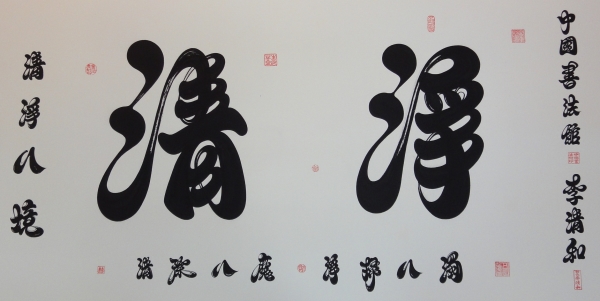 清淨八境
清淨
清八魔
淨八濁
中國書法館 李清和